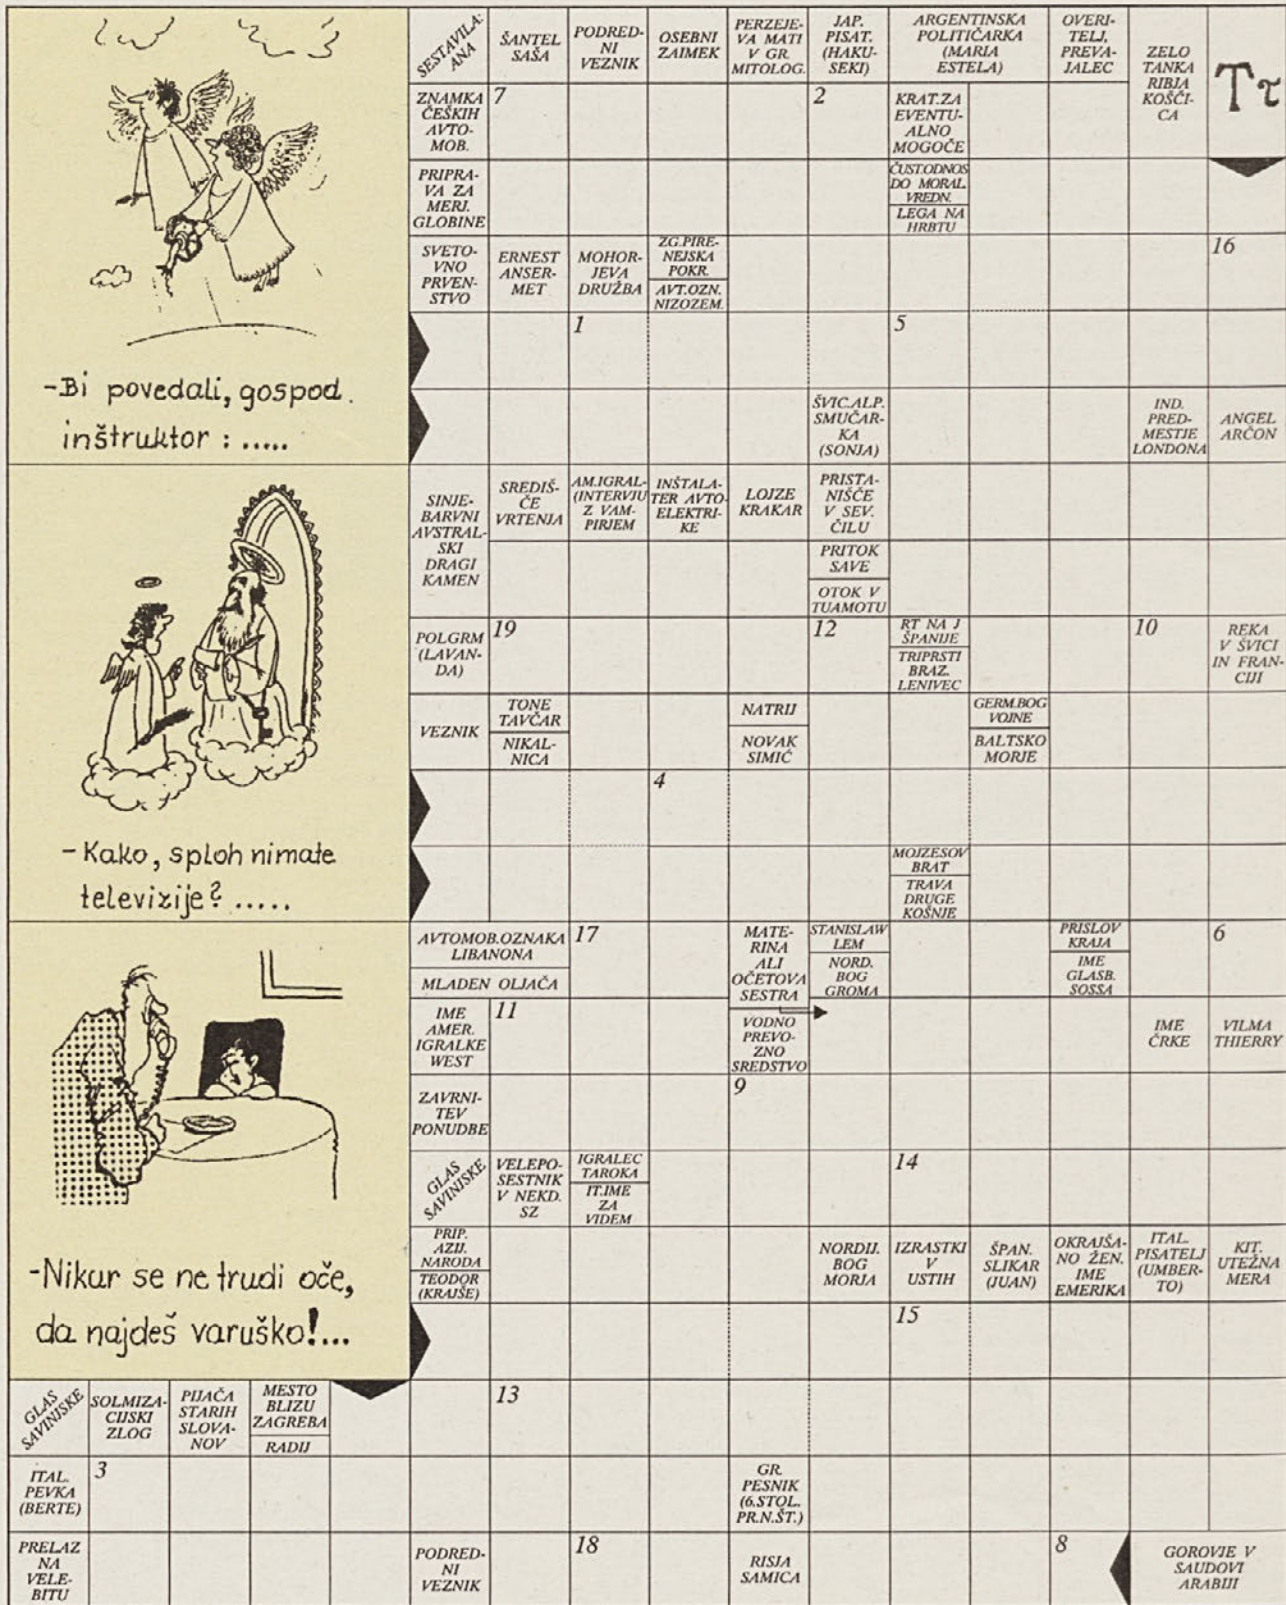 SESTAVILA:
ANA
ŠANTEL
SAŠA
PODRED-
NI
VEZNIK
OSEBNI
ZAIMEK
PERZEJE-
VA MATI
V GR.
MITOLOG.
JAP.
PISAT.
(HAKU-
SEKI)
ARGENTINSKA
POLITIČARKA
(MARIA
ESTELA)
OVERI-
TELJ,
PREVA-
JALEC
ZELO
TANKA
RIBJA
KOŠČI-
CA
Ττ
ZNAMKA
ČEŠKIH
AVTO-
MOB.
7
2
KRAT.ZA
EVENTU-
ALNO
MOGOČE
PRIPRA-
VA ZA
MERJ.
GLOBINE
ČUST.ODNOS
DO MORAL.
VREDN.
LEGA NA
HRBTU
SVETO-
VNO
PRVEN-
STVO
ERNEST
ANSER-
MET
MOHOR-
JEVA
DRUŽBA
ZG.PIRE-
NEJSKA
POKR.
AVT.OZN.
NIZOZEM.
16
1
5
-Bi povedali, gospod.
inštruktor : .....
ŠVIC.ALP.
SMUČAR-
KA
(SONJA)
IND.
PRED-
MESTJE
LONDONA
ANGEL
ARČON
SINJE-
BARVNI
AVSTRAL-
SKI
DRAGI
KAMEN
SREDIŠ-
ČE
VRTENJA
AM.IGRAL.
(INTERVJU
Z VAM-
PIRJEM
INŠTALA-
TER AVTO-
ELEKTRI-
KE
LOJZE
KRAKAR
PRISTA-
NIŠČE
V SEV.
ČILU
PRITOK
SAVE
OTOK V
TUAMOTU
POLGRM
(LAVAN-
DA)
19
12
RT NA J
ŠPANIJE
TRIPRSTI
BRAZ.
LENIVEC
10
REKA
V ŠVICI
IN FRAN-
CIJI
VEZNIK
TONE
TAVČAR
NIKAL-
NICA
NATRIJ
NOVAK
SIMIĆ
GERM.BOG
VOJNE
BALTSKO
MORJE
4
-Kako, sploh nimate
televizije? .....
MOJZESOV
BRAT
TRAVA
DRUGE
KOŠNJE
AVTOMOB.OZNAKA
LIBANONA
MLADEN OLJAČA
17
MATE-
RINA
ALI
OČETOVA
SESTRA
VODNO
PREVO-
ZNO
SREDSTVO
STANISLAW
LEM
NORD.
BOG
GROMA
PRISLOV
KRAJA
IME
GLASB.
SOSSA
6
IME
AMER.
IGRALKE
WEST
11
IME
ČRKE
VILMA
THIERRY
ZAVRNI-
TEV
PONUDBE
9
GLAS
SAVINJSKE
VELEPO-
SESTNIK
V NEKD.
SZ
IGRALEC
TAROKA
IT.IME
ZA
VIDEM
14
PRIP.
AZIJ.
NARODA
TEODOR
(KRAJŠE)
NORDIJ.
BOG
MORJA
IZRASTKI
V
USTIH
ŠPAN.
SLIKAR
(JUAN)
OKRAJŠA-
NO ŽEN.
IME
EMERIKA
ITAL.
PISATELJ
(UMBER-
TO)
KIT.
UTEŽNA
MERA
-Nikar se ne trudi oče,
da najdeš varuško!...
15
GLAS
SAVINJSKE
SOLMIZA-
CIJSKI
ZLOG
PIJAČA
STARIH
SLOVA-
NOV
MESTO
BLIZU
ZAGREBA
RADIJ
13
ITAL.
PEVKA
(BERTE)
3
GR.
PESNIK
(6.STOL.
PR.N.ŠT.)
PRELAZ
NA
VELE-
BITU
PODRED-
NI
VEZNIK
18
RISJA
SAMICA
8
GOROVJE V
SAUDOVI
ARABIJI